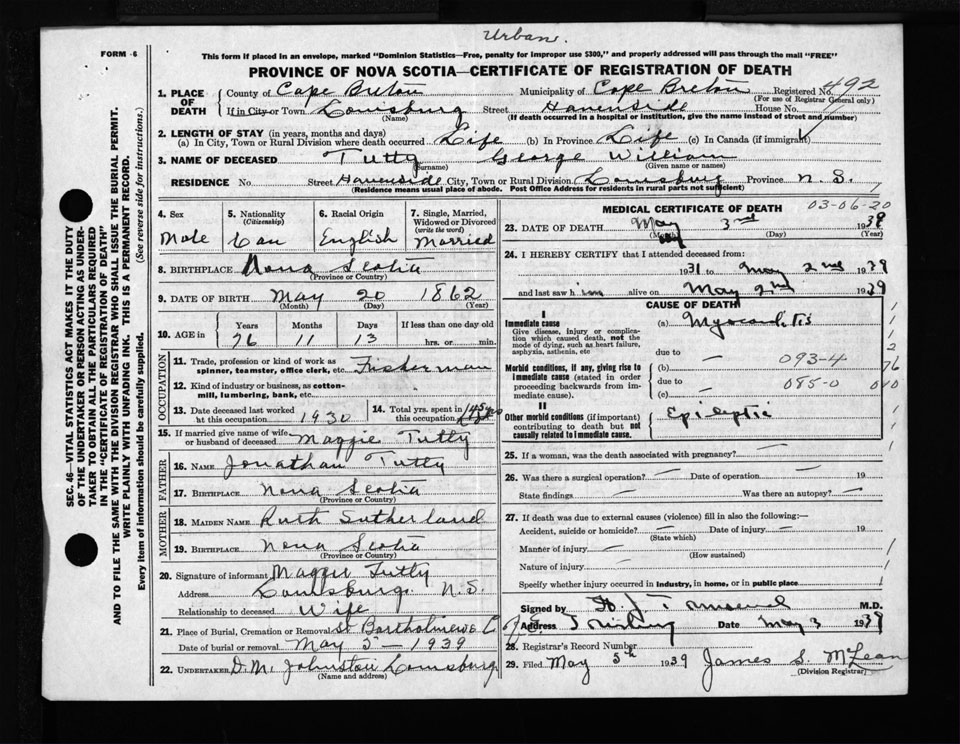 Urban.
FORM 6
This form if placed in an envelope, marked "Dominion Statistics—Free, penalty for improper use $300," and properly addressed will pass through the mail "FREE"
PROVINCE OF NOVA SCOTIA—CERTIFICATE OF REGISTRATION OF DEATH
SEC. 46—VITAL STATISTICS ACT MAKES IT THE DUTY
OF THE UNDERTAKER OR PERSON ACTING AS UNDER-
TAKER TO OBTAIN ALL THE PARTICULARS REQUIRED
IN THE "CERTIFICATE OF REGISTRATION OF DEATH"
AND TO FILE THE SAME WITH THE DIVISION REGISTRAR WHO SHALL ISSUE THE BURIAL PERMIT.
WRITE PLAINLY WITH UNFADING INK. THIS IS A PERMANENT RECORD.
Every item of information should be carefully supplied. (See reverse side for instructions.)
1. PLACE OF DEATH County of Cape Breton Municipality of Cape Breton Registered No. 492
(For use of Registrar General only)
If in City or Town Louisburg Street Havenside House No.
(Name) (If death occurred in a hospital or institution, give the name instead of street and number)
2. LENGTH OF STAY (in years, months and days)
(a) In City, Town or Rural Division where death occurred Life (b) In Province Life (c) In Canada (if immigrant)
3. NAME OF DECEASED Tutty George William
(Surname) (Given name or names)
RESIDENCE No. Street Havenside City, Town or Rural Division Louisburg Province N. S.
(Residence means usual place of abode. Post Office Address for residents in rural parts not sufficient)
4. Sex 5. Nationality (Citizenship) 6. Racial Origin 7. Single, Married, Widowed or Divorced (write the word)
Male Can English Married
8. BIRTHPLACE Nova Scotia
(Province or Country)
9. DATE OF BIRTH May 20 1862
(Month) (Day) (Year)
10. AGE in Years Months Days If less than one day old
76 11 13 hrs. or min.
OCCUPATION
11. Trade, profession or kind of work as
spinner, teamster, office clerk, etc. Fisherman
12. Kind of industry or business, as cotton-
mill, lumbering, bank, etc.
13. Date deceased last worked
at this occupation 1930
14. Total yrs. spent in
this occupation 45 yrs
15. If married give name of wife
or husband of deceased Maggie Tutty
FATHER
16. NAME Jonathan Tutty
17. BIRTHPLACE Nova Scotia
(Province or Country)
MOTHER
18. MAIDEN NAME Ruth Sutherland
19. BIRTHPLACE Nova Scotia
(Province or Country)
20. Signature of informant Maggie Tutty
Address Louisburg N. S.
Relationship to deceased Wife
21. Place of Burial, Cremation or Removal St Bartholmews C
Date of burial or removal May 5 — 1939
22. UNDERTAKER D. M. Johnston Louisburg
(Name and address)
MEDICAL CERTIFICATE OF DEATH 03-06-20
23. DATE OF DEATH May 3rd 1939
(Month) (Day) (Year)
24. I HEREBY CERTIFY that I attended deceased from:
1931 to May 2nd 1939
and last saw him alive on May 2nd 1939
CAUSE OF DEATH
I
Immediate cause (a) Myocarditis
Give disease, injury or complica-
tion which caused death, not the
mode of dying, such as heart failure,
asphyxia, asthenia, etc
due to
Morbid conditions, if any, giving rise to
immediate cause (stated in order
proceeding backwards from im-
mediate cause).
(b) — 093-4 76
due to — 085-0 010
(c)
II
Other morbid conditions (if important)
contributing to death but not
causally related to immediate cause.
Epileptic
25. If a woman, was the death associated with pregnancy? —
26. Was there a surgical operation? — Date of operation — 19
State findings — Was there an autopsy? —
27. If death was due to external causes (violence) fill in also the following:—
Accident, suicide or homicide? — Date of injury — 19
(State which)
Manner of injury —
(How sustained)
Nature of injury —
Specify whether injury occurred in industry, in home, or in public place
Signed by M.D.
Address Date May 3 1939
28. Registrar's Record Number
29. Filed May 5th 1939 James S. McLean
(Division Registrar)